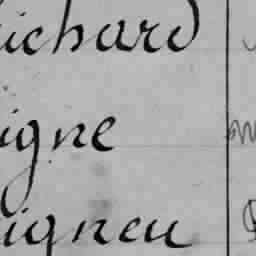 ichard
igne
igneu